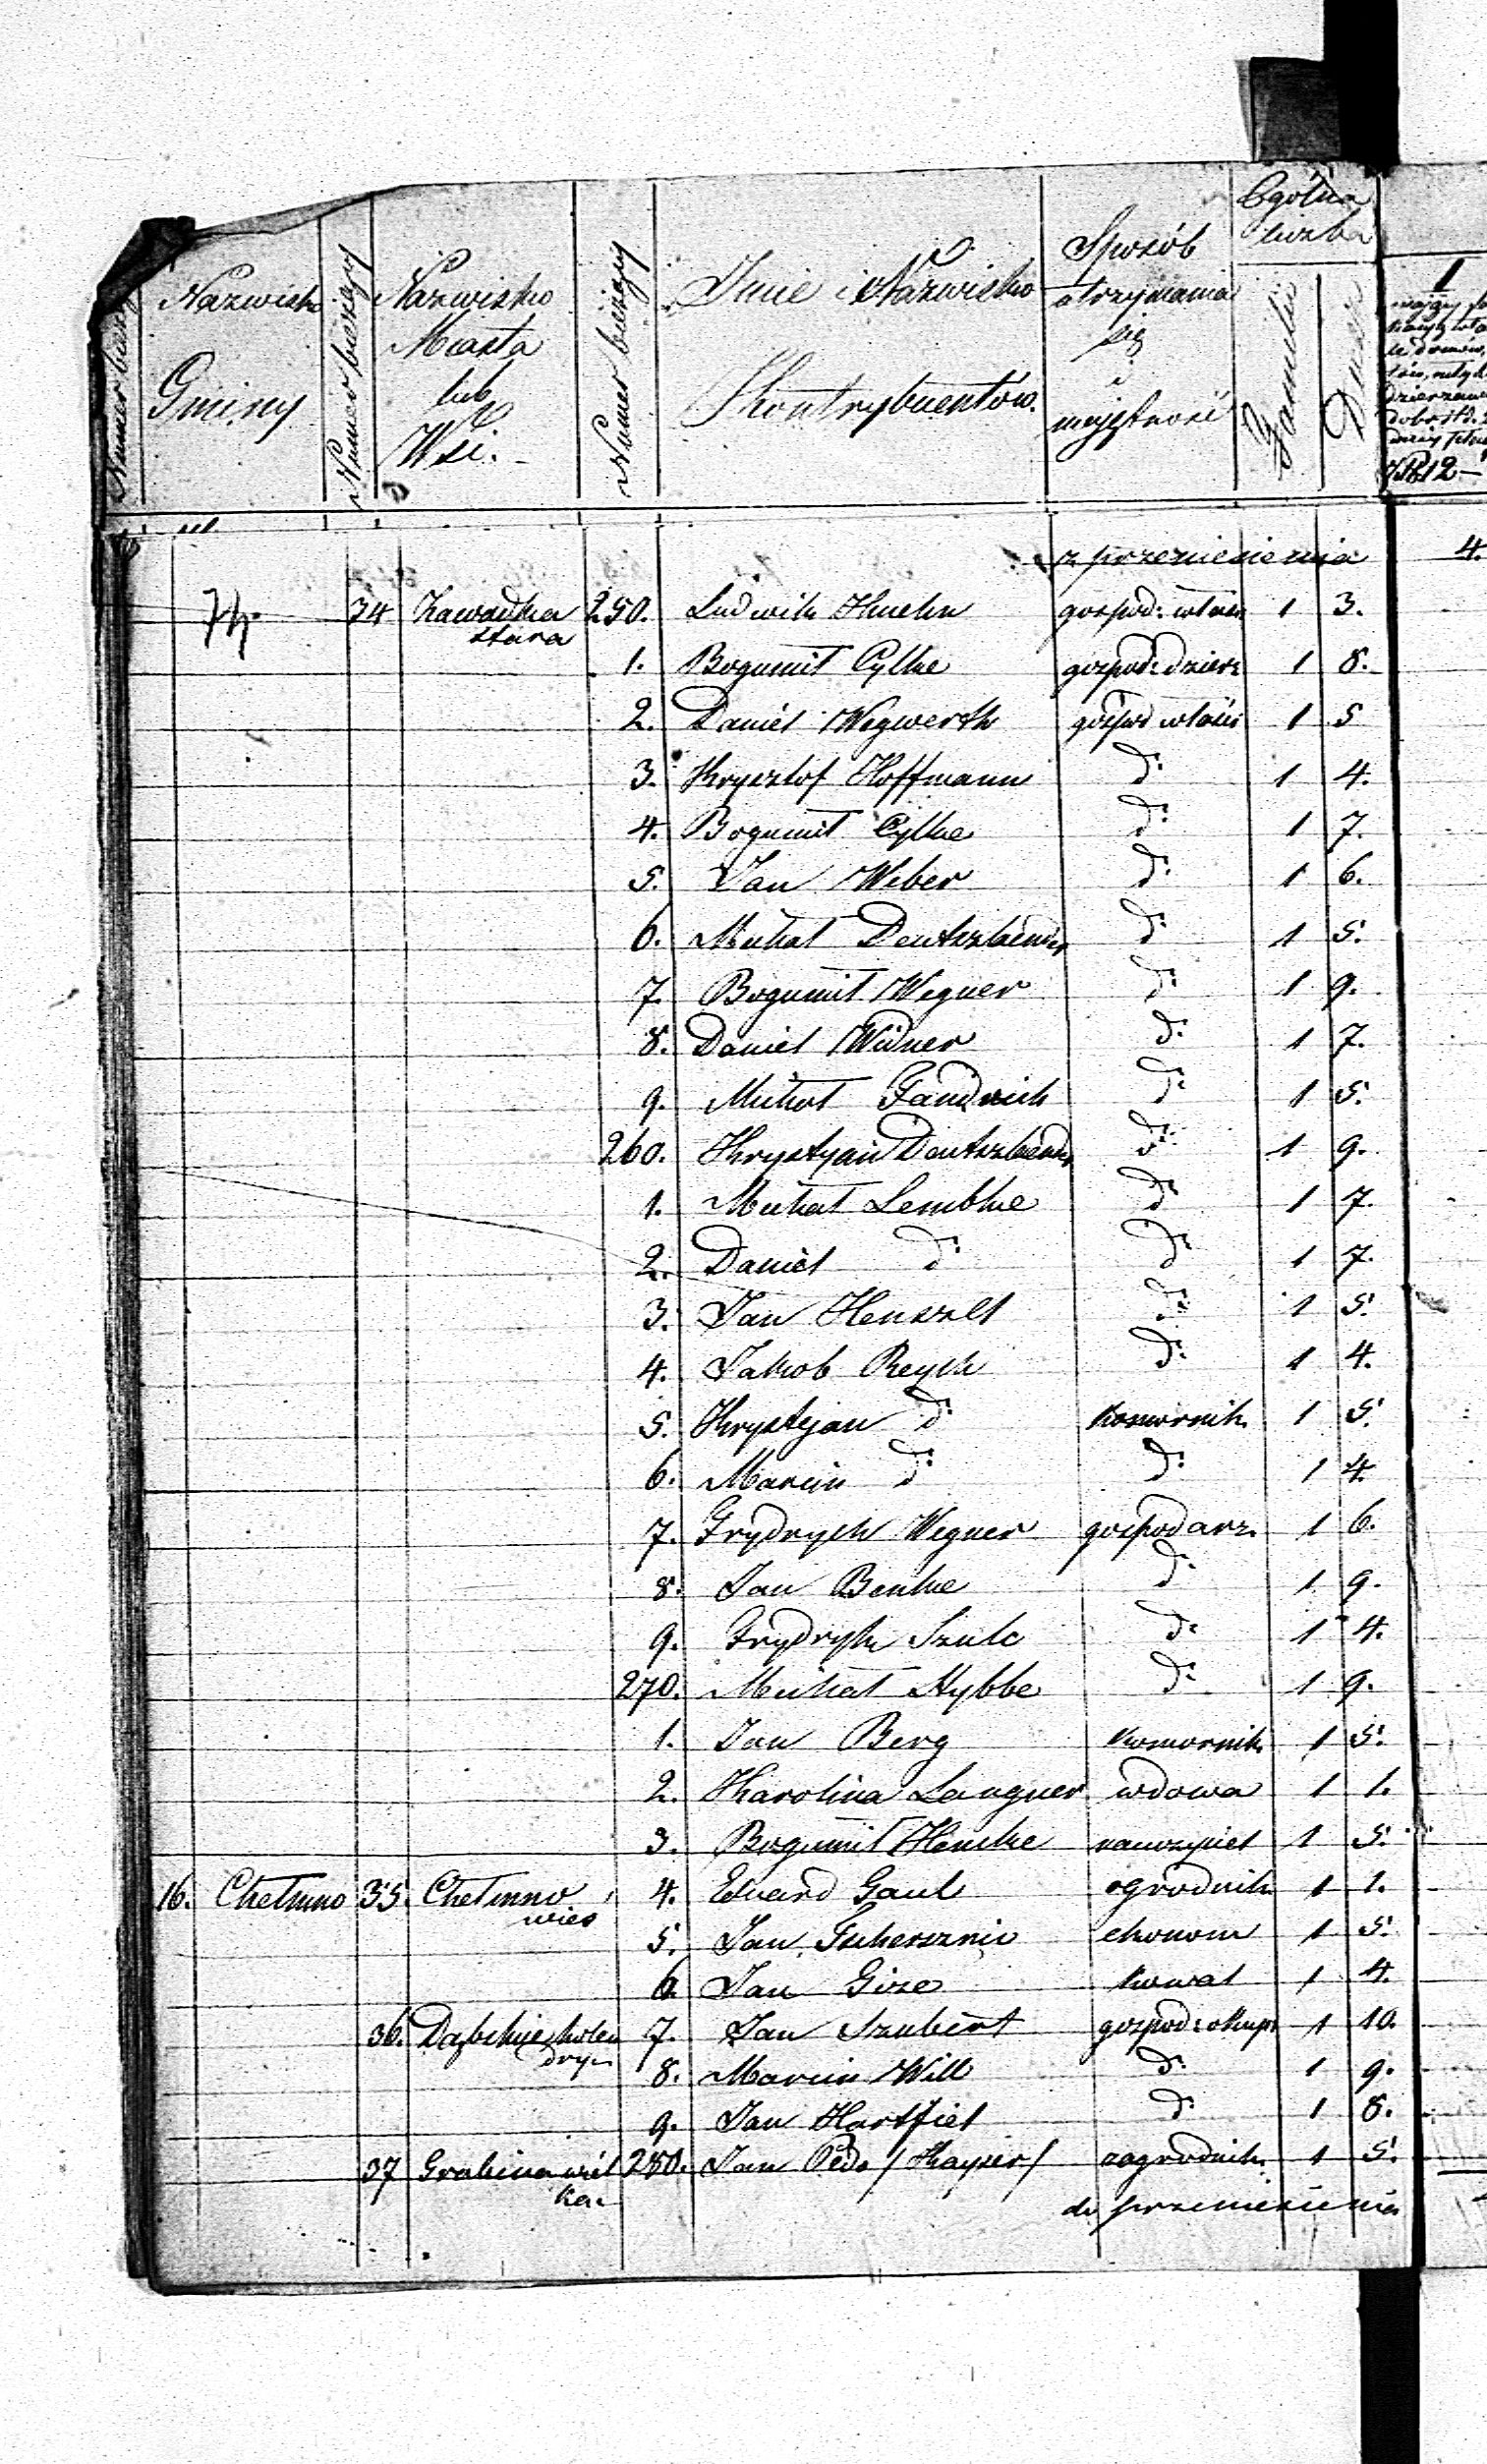 Numer bieżący
Nazwisko Gminy
Numer bieżący
Nazwisko Miasta lub Wsi.
Numer bieżący
Imie i Nazwisko Kontrybuentów.
Sposób otrzymania się i majętność
Ogólna liczba
Familii
Dusz
z przeniesienia 4.
34 Zawadka stara 250. Ludwik Kuehn gospod: właśc 1 3.
1. Bogumił Cylke gospod: dzierż 1 8.
2. Daniel Wegwerth gospod właśc 1 5
3. Krysztof Hoffmann d: 1 4.
4. Bogumił Cylke d: 1 7.
5. Jan Weber d: 1 6.
6. Michał Deutszlender d: 1 5.
7. Bogumił Wegner d: 1 9.
8. Daniel Widner d: 1 7.
9. Michał Fandrich d: 1 5.
260. Krystyan Deutszlender d: 1 9.
1. Michał Lembke d: 1 7.
2. Daniel d: d: 1 7.
3. Jan Henszlt d: 1 5.
4. Jakob Reych d: 1 4.
5. Krystjan d: Komornik 1 5.
6. Marcin d: d: 1 4.
7. Frydrych Wegner gospodarz. 1 6.
8. Jan Benke d: 1 9.
9. Frydrych Szulc d: 1 4.
270. Michał Hybbe d: 1 9.
1. Jan Berg Komornik 1 5.
2. Karolina Langner wdowa 1 1.
3. Bogumił Hencke nauczyciel 1 5.
16. Chełmno 35. Chełmno wieś 4. Edward Gaul ogrodnik 1 1.
5. Jan ekonom 1 5.
6. Jan Gize Kowal 1 4.
36. Dąbskie holendry 7. Jan Szubert gospod: okup: 1 10.
8. Marcin Will d: 1 9.
9. Jan Hartfiel d: 1 8.
37 Grabina wielka 280. Jan Pede / Kayser / zagrodnik. 1 5.
do przeniesienia